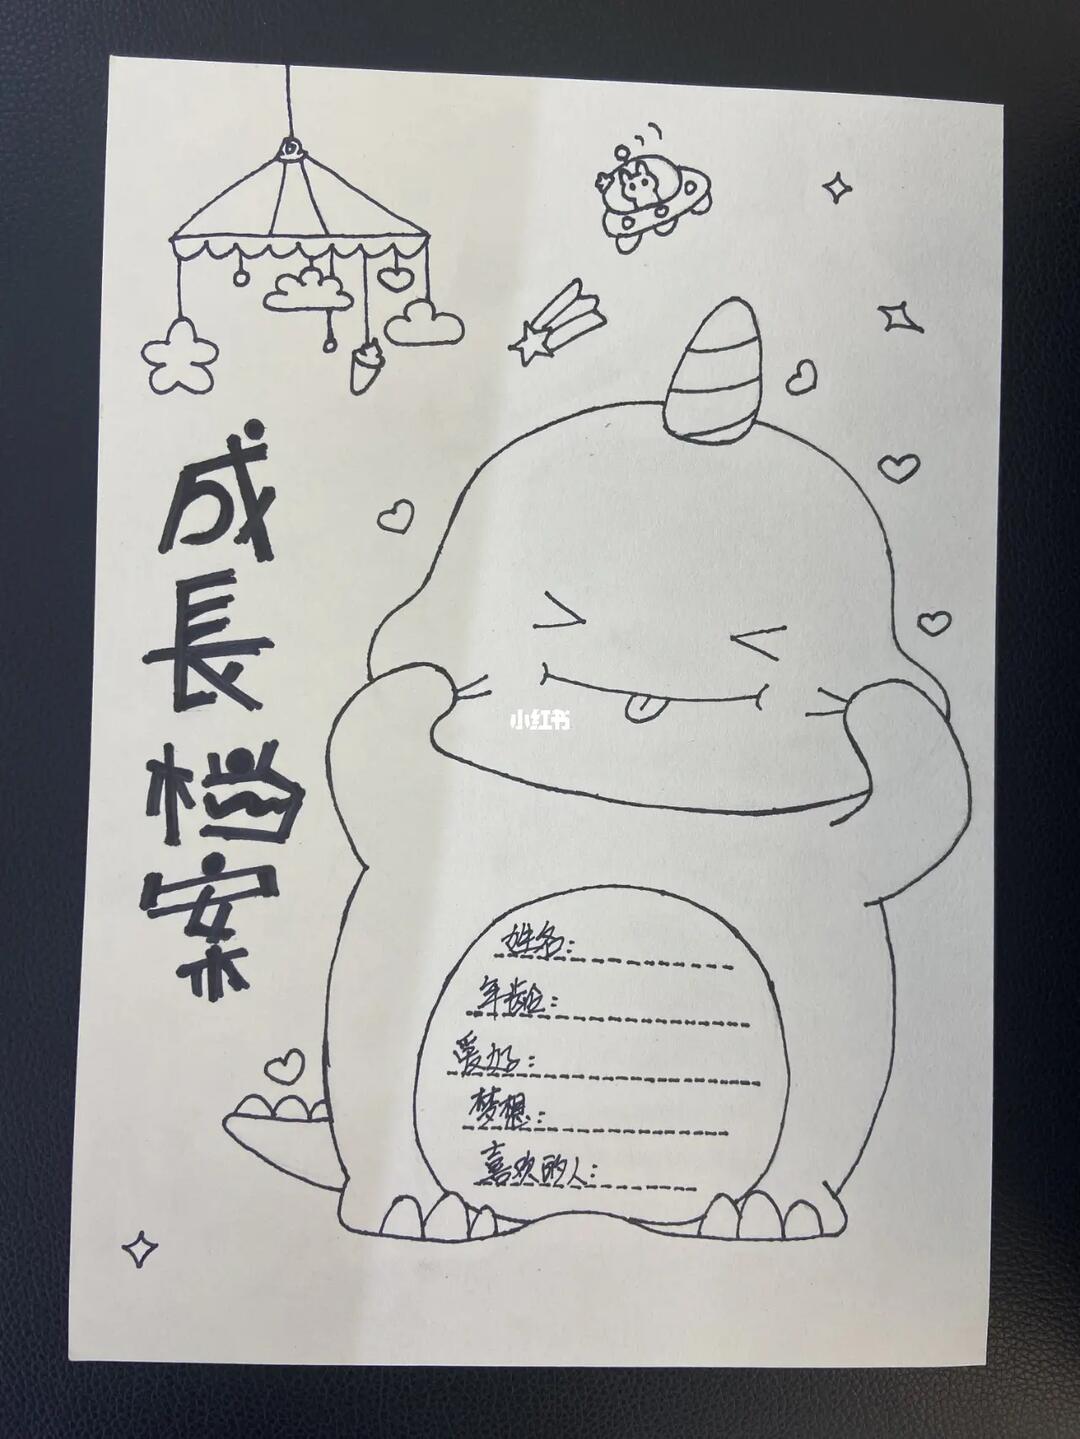 成長档案
小红书
姓名:
年龄:
爱好:
梦想:
喜欢的人: